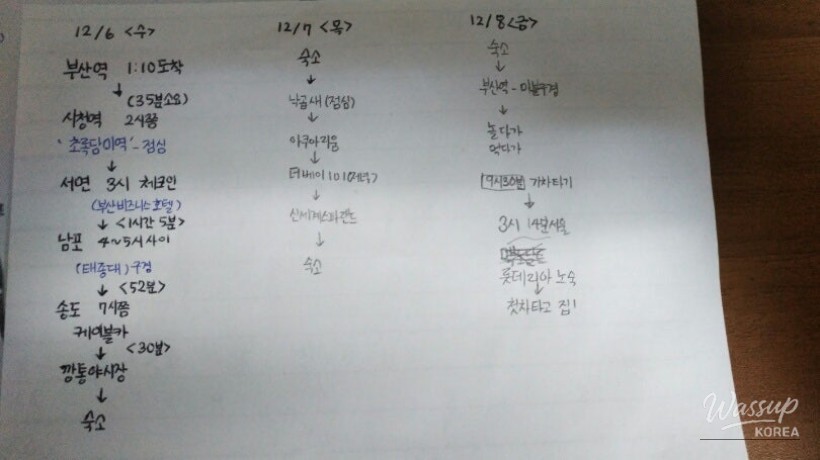 12/6 <수>
부산역 1:10 도착
↓ (35분소요)
시청역 2시쯤
'초록담이역' - 점심
↓
서면 3시 체크인
(부산비즈니스호텔)
↓ <1시간 5분>
남포 4~5시 사이
(태종대) 구경
↓ <52분>
송도 7시쯤
케이블카
↓ <30분>
깡통야시장
↓
숙소
12/7 <목>
숙소
↓
낙곱새 (점심)
↓
아쿠아리움
↓
더베이 101
↓
신세계스파랜드
↓
숙소
12/8 <금>
숙소
↓
부산역 -
↓
놀다가
먹다가
9시30분 기차타기
↓
3시 14분 서울
롯데리아 노숙
↓
첫차타고 집!
Wassup
KOREA